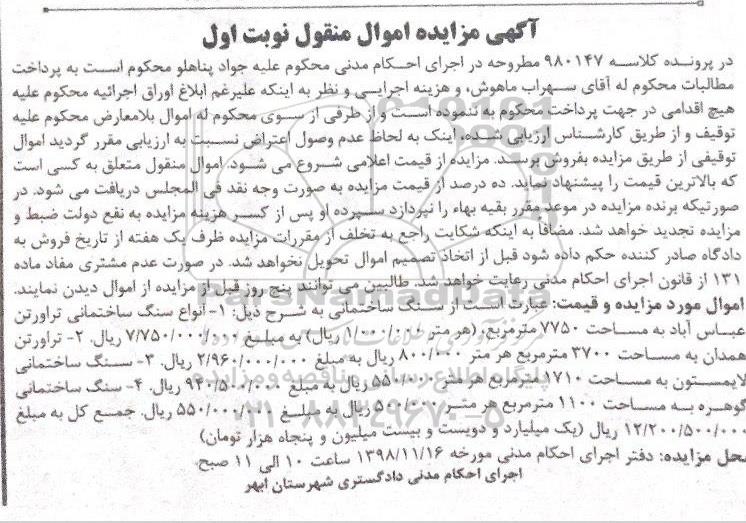 آگهی مزایده اموال منقول نوبت اول
در پرونده کلاسه ۹۸۰۱۴۷ مطروحه در اجرای احکام مدنی محکوم علیه جواد پناهلو محکوم است به پرداخت
مطالبات محکوم له آقای سهراب ماهوش، و هزینه اجرایی و نظر به اینکه علیرغم ابلاغ اوراق اجرائیه محکوم علیه
هیچ اقدامی در جهت پرداخت محکوم به ننموده است و از طرفی از سوی محکوم له اموال بلامعارض محکوم علیه
توقیف و از طریق کارشناس ارزیابی شده، اینک به لحاظ عدم وصول اعتراض نسبت به ارزیابی مقرر گردید اموال
توقیفی از طریق مزایده بفروش برسد. مزایده از قیمت اعلامی شروع می شود. اموال منقول متعلق به کسی است
که بالاترین قیمت را پیشنهاد نماید. ده درصد از قیمت مزایده به صورت وجه نقد فی المجلس دریافت می شود. در
صورتیکه برنده مزایده در موعد مقرر بقیه بهاء را نپردازد سپرده او پس از کسر هزینه مزایده به نفع دولت ضبط و
مزایده تجدید خواهد شد. مضافا به اینکه شکایت راجع به تخلف از مقررات مزایده ظرف یک هفته از تاریخ فروش به
دادگاه صادر کننده حکم داده شود قبل از اتخاذ تصمیم اموال تحویل نخواهد شد. در صورت عدم مشتری مفاد ماده
۱۳۱ از قانون اجرای احکام مدنی رعایت خواهد شد. طالبین می توانند پنج روز قبل از مزایده از اموال دیدن نمایند.
اموال مورد مزایده و قیمت: عبارت است از سنگ ساختمانی به شرح ذیل: ۱- انواع سنگ ساختمانی تراورتن
عباس آباد به مساحت ۷۷۵۰ مترمربع، (هر متر ۱/۰۰۰/۰۰۰ ریال) به مبلغ ۷/۷۵۰/۰۰۰/۰۰۰ ریال. ۲- تراورتن
همدان به مساحت ۳۷۰۰ مترمربع هر متر ۸۰۰/۰۰۰ ریال به مبلغ ۲/۹۶۰/۰۰۰/۰۰۰ ریال. ۳- سنگ ساختمانی
لایمستون به مساحت ۱۷۱۰ مترمربع هر متر ۵۵۰/۰۰۰ ریال به مبلغ ۹۴۰/۵۰۰/۰۰۰ ریال. ۴- سنگ ساختمانی
گوهره به مساحت ۱۱۰۰ مترمربع هر متر ۵۰۰/۰۰۰ ریال به مبلغ ۵۵۰/۰۰۰/۰۰۰ ریال. جمع کل به مبلغ
۱۲/۲۰۰/۵۰۰/۰۰۰ ریال (یک میلیارد و دویست و بیست میلیون و پنجاه هزار تومان)
محل مزایده: دفتر اجرای احکام مدنی مورخه ۱۳۹۸/۱۱/۱۶ ساعت ۱۰ الی ۱۱ صبح.
اجرای احکام مدنی دادگستری شهرستان ابهر
ParsNamadData
پایگاه اطلاع رسانی مناقصه و مزایده
۰۲۱-۸۸۳۴۹۶۷۰-۵